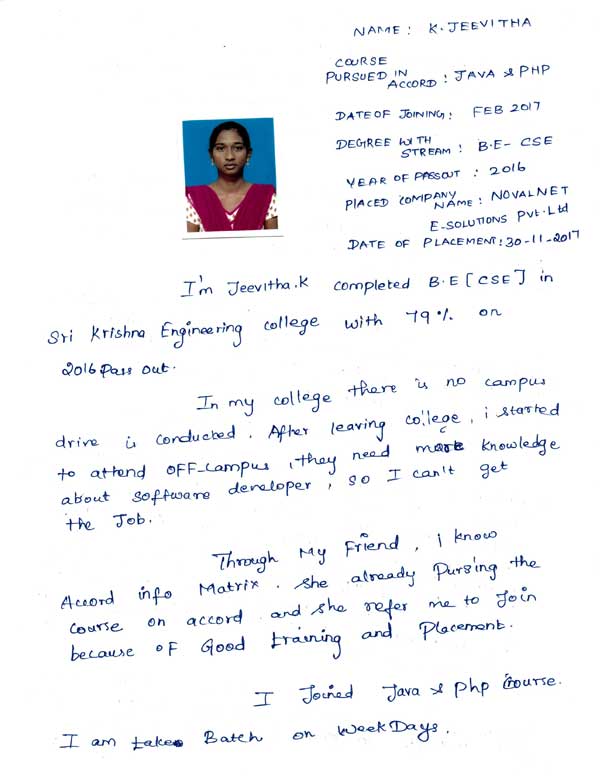 NAME: K. JEEVITHA
COURSE
PURSUED IN
ACCORD: JAVA & PHP
DATE OF JOINING: FEB 2017
DEGREE WITH
STREAM: B.E- CSE
YEAR OF PASSOUT: 2016
PLACED COMPANY
NAME: NOVALNET
E-SOLUTIONS PVT.Ltd
DATE OF PLACEMENT: 30-11-2017
I'm Jeevitha.K completed B.E [CSE] in
Sri Krishna Engineering college with 79% on
2016 Pass out.
In my college there is no campus
drive is conducted. After leaving college, i started
to attend OFF-campus, they need more knowledge
about software developer, so I can't get
the Job.
Through My Friend, i know
Accord info Matrix. she already Pursing the
course on accord and she refer me to Join
because of Good training and Placement.
I Joined Java & Php Course.
I am take Batch on WeekDays.